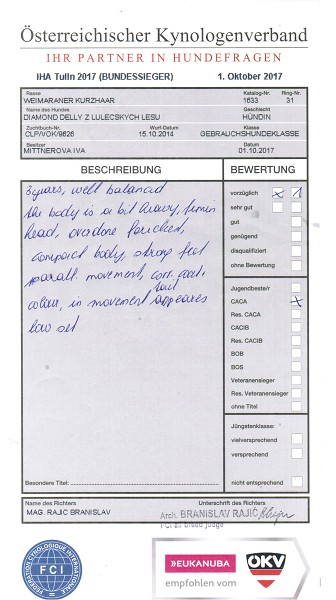 Österreichischer Kynologenverband
IHR PARTNER IN HUNDEFRAGEN
IHA Tulln 2017 (BUNDESSIEGER) 1. Oktober 2017
Rasse Katalog-Nr. Ring-Nr.
WEIMARANER KURZHAAR 1633 31
Name des Hundes Geschlecht
DIAMOND DELLY Z LULECSKYCH LESU HÜNDIN
Zuchtbuch-Nr. Wurf-Datum Klasse
CLP/VOK/9626 15.10.2014 GEBRAUCHSHUNDEKLASSE
Besitzer Datum
MITTNEROVA IVA 01.10.2017
BESCHREIBUNG BEWERTUNG
3 years, well balanced
the body is a bit heavy,
head, overdone
compact body, strong feet
movement, corr. coat,
colour, in movement tail appeares
low set
vorzüglich X 1
sehr gut
gut
genügend
disqualifiziert
ohne Bewertung
Jugendbeste/r
CACA X
Res. CACA
CACIB
Res. CACIB
BOB
BOS
Veteranensieger
Res. Veteranensieger
ohne Titel
Jüngstenklasse:
vielversprechend
versprechend
nicht entsprechend
Besondere Titel:
Name des Richters Unterschrift des Richters
MAG. RAJIC BRANISLAV
Arch. BRANISLAV RAJIĆ
FCI all breed judge
FEDERATION CYNOLOGIQUE INTERNATIONALE
FCI
EUKANUBA
empfohlen vom
ÖKV